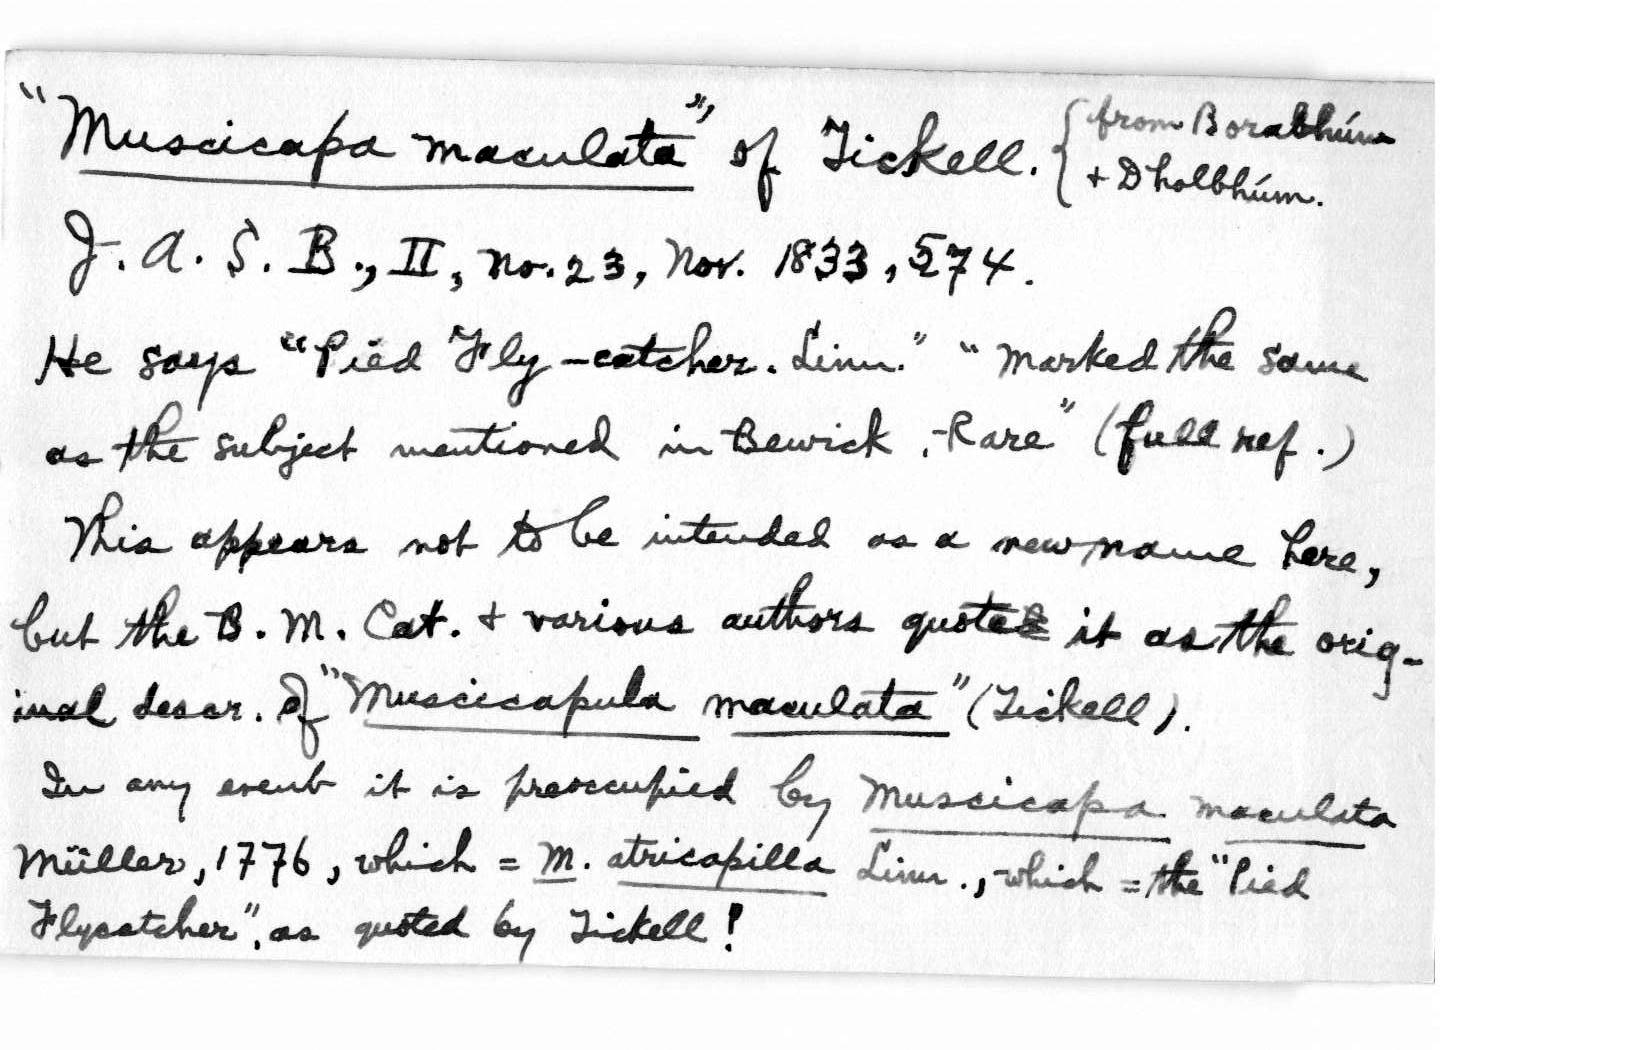 "Muscicapa maculata", of Tickell. {from Borabhúm
+ Dholbhúm.
J. A. S. B., II, no. 23, Nov. 1833, 574.
He says "Pied Fly-catcher. Linn." "Marked the same
as the subject mentioned in Bewick. Rare" (full ref.)
This appears not to be intended as a new name here,
but the B. M. Cat. + various authors quote it as the orig-
inal descr. of "Muscicapula maculata" (Tickell).
In any event it is preoccupied by Muscicapa maculata
Müller, 1776, which = M. atricapilla Linn., which = the "Pied
Flycatcher", as quoted by Tickell!